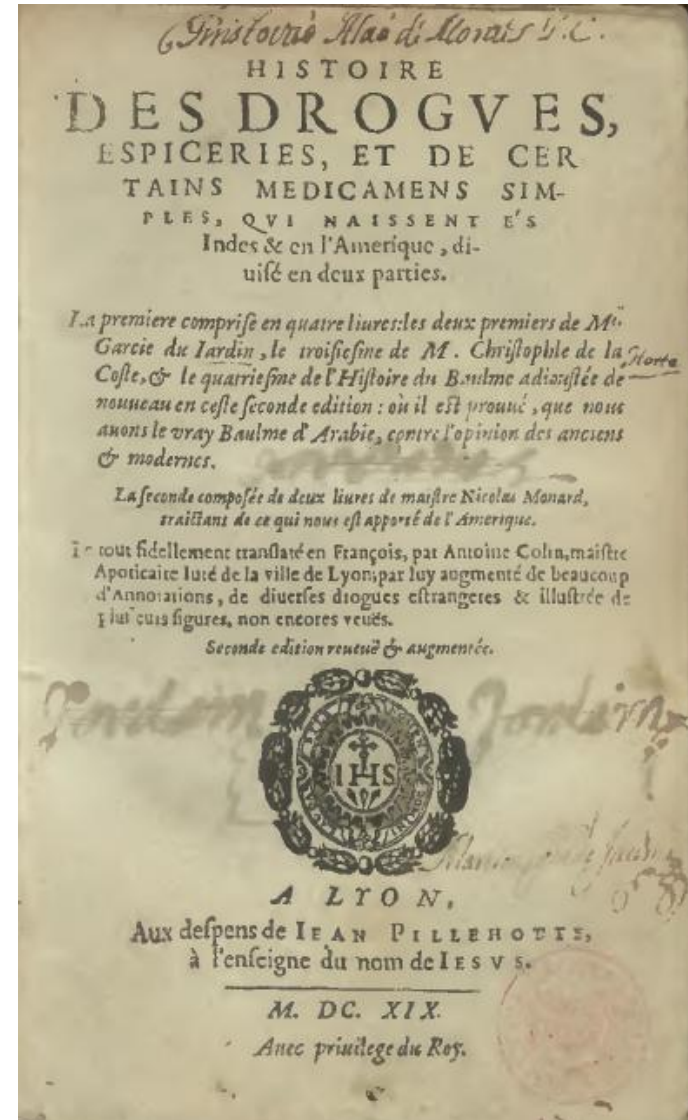 HISTOIRE
DES DROGVES,
ESPICERIES, ET DE CER
TAINS MEDICAMENS SIM-
PLES, QVI NAISSENT E'S
Indes & en l'Amerique, di-
uisé en deux parties.
La premiere comprise en quatre liures: les deux premiers de Me.
Garcie du Iardin, le troisiesme de M. Christophle de la
Horta
Coste, & le quatriesme de l'Histoire du Baulme adioustée de
nouueau en ceste seconde edition: où il est prouué, que nous
auons le vray Baulme d'Arabie, contre l'opinion des anciens
& modernes.
La seconde composée de deux liures de maistre Nicolas Monard,
traictant de ce qui nous est apporté de l'Amerique.
Le tout fidellement translaté en François, par Antoine Colin, maistre
Apoticaire Iuré de la ville de Lyon; par luy augmenté de beaucoup
d'Annotations, de diuerses drogues estrangeres & illustrée de
plusieurs figures, non encores veuës.
Seconde edition reueuë & augmentée.
IHS
A LYON,
Aux despens de IEAN PILLEHOTTE,
à l'enseigne du nom de IESVS.
M. DC. XIX.
Auec priuilege du Roy.